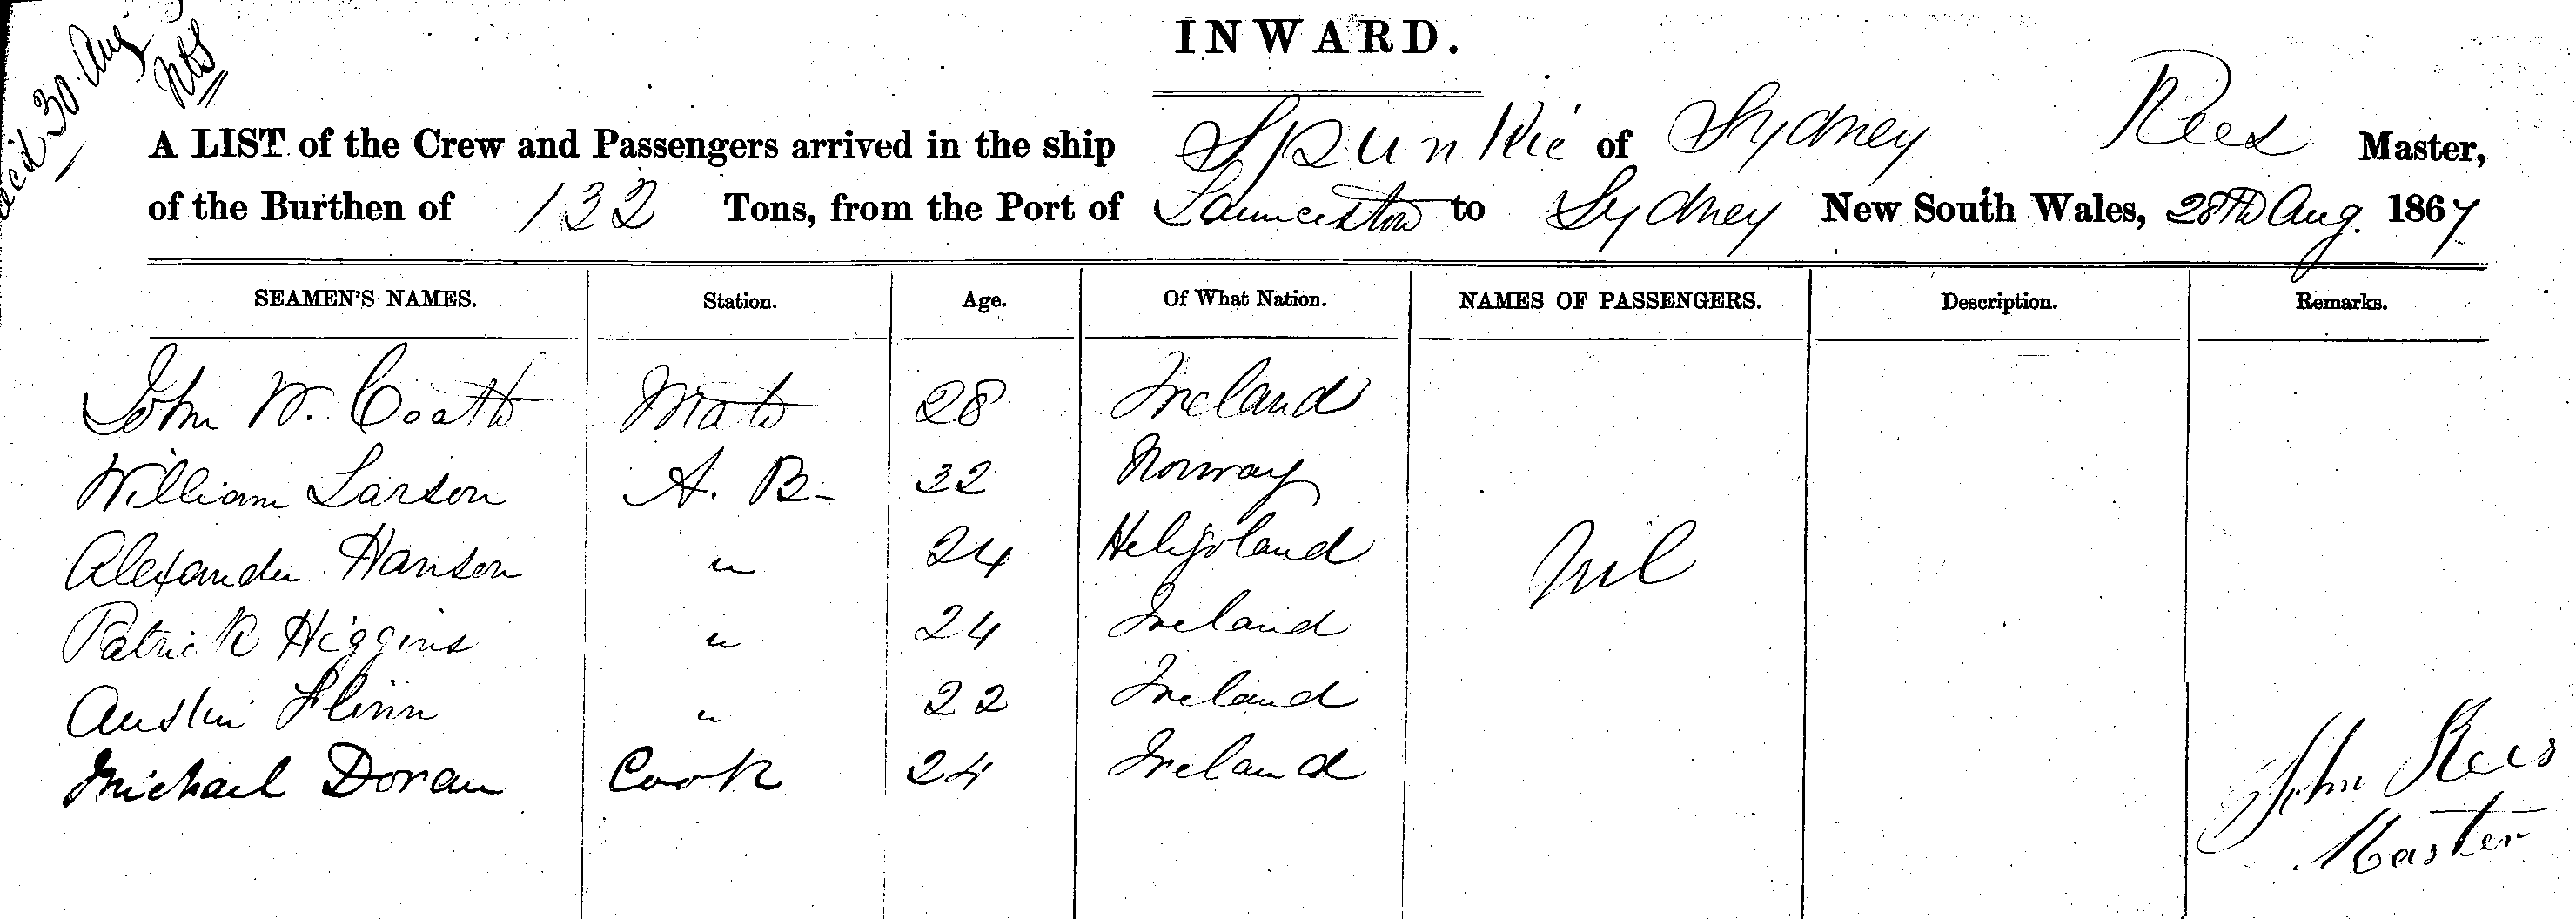 30 Aug
INWARD.
A LIST of the Crew and Passengers arrived in the ship Spunkie of Sydney Rees Master,
of the Burthen of 132 Tons, from the Port of Launceston to Sydney New South Wales, 28th Aug. 1867
SEAMEN'S NAMES. Station. Age. Of What Nation. NAMES OF PASSENGERS. Description. Remarks.
John W. Coath Mate 28 Ireland
William Larson A. B- 32 Norway
Alexander Hanson " 24 Heligoland Nil
Patrick Higgins " 24 Ireland
Austin Flinn " 22 Ireland
Michael Doran Cook 24 Ireland
John Rees
Master